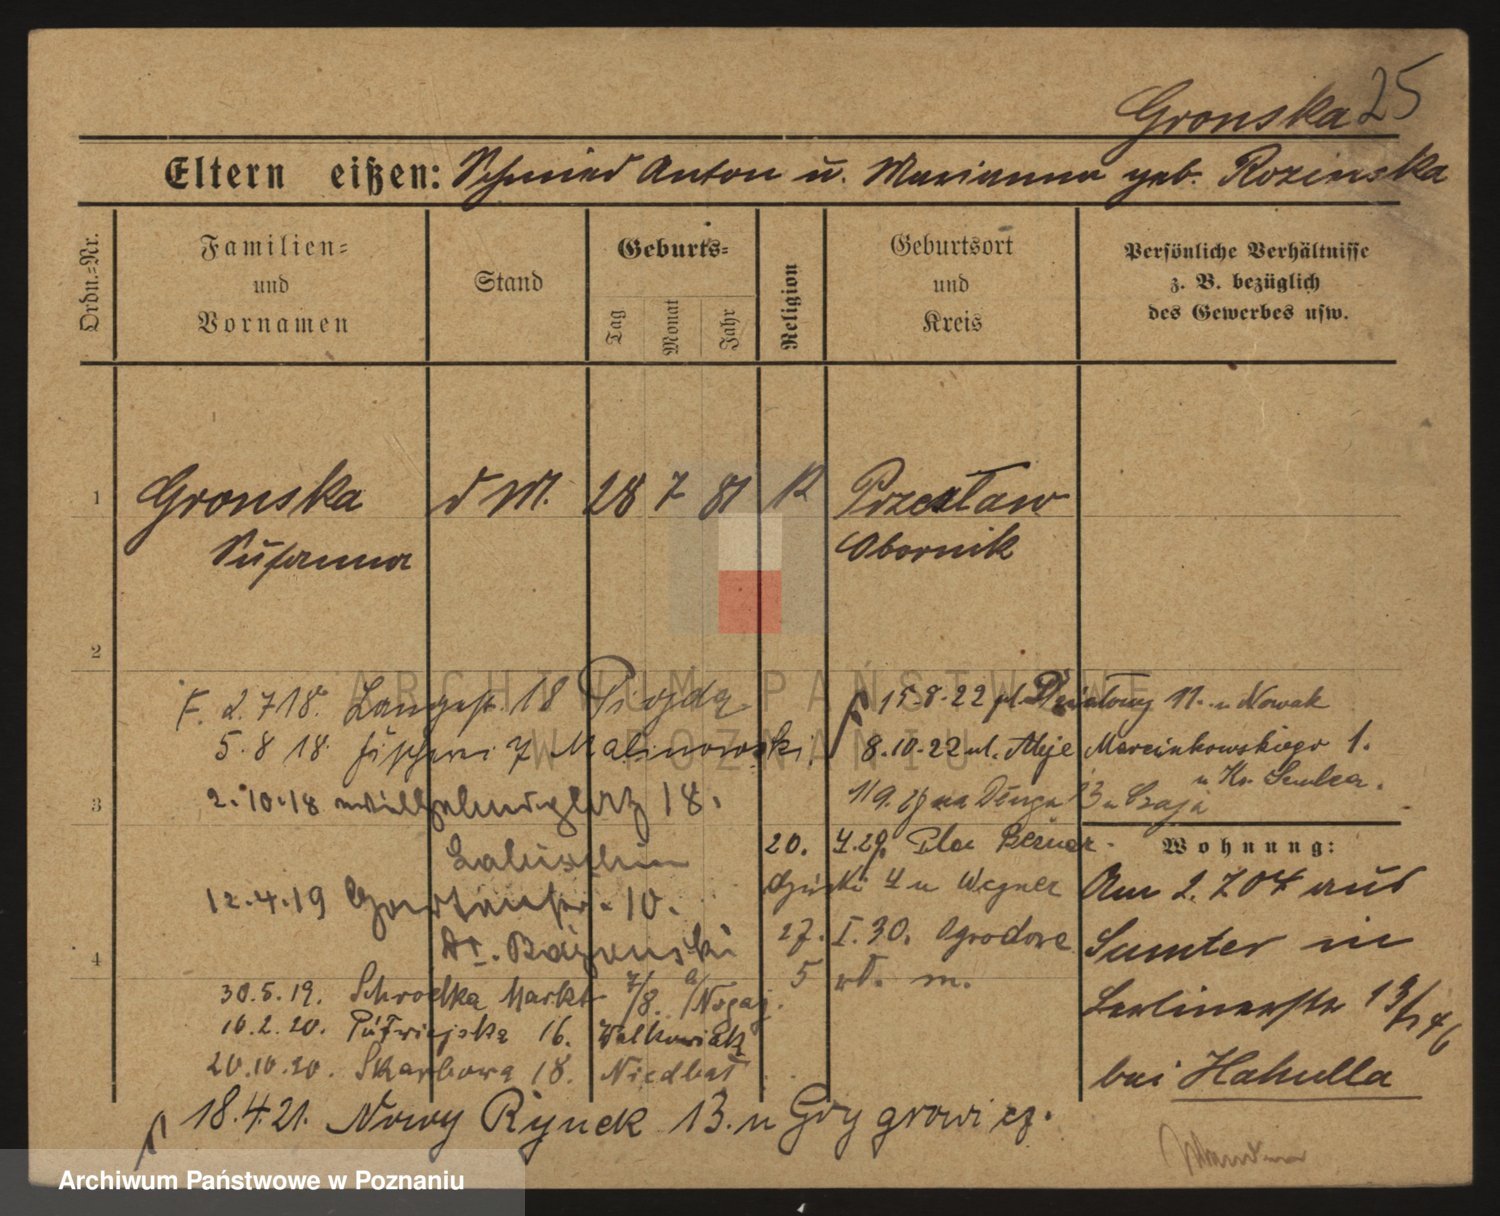 Gronska 25
Eltern eißen: Schmied Anton u. Marianna geb. Rozinska
Ordn.=Nr.
Familien=
und
Vornamen
Stand
Geburts=
Tag
Monat
Jahr
Religion
Geburtsort
und
Kreis
Persönliche Verhältnisse
z. B. bezüglich
des Gewerbes usw.
1 Gronska d M. 28 7 81 K Przecław
Susanna Obornik
2
F. 2.7 18. Langestr. 18 Piojda
5.8 18. Fischerei 7 Malinowski
3 2.10.18 Wilhelmsplatz 18.
12.4.19 Gartenstr. 10.
4 Dr.
30.5.19. Schrodka Markt 7/8. b/Nogaj.
16.2.20. Półwiejska 16. Walkowiak
20.10.20. Skarbowa 18. Niedbał
18.4.21. Nowy Rynek 13. u Grygrowicz.
15.8.22 pl. Działowy 11. u Nowak
8.10.22 ul. Aleje Marcinkowskiego 1.
Długa 13 u Czaja
20. 4.29. Plac Bernar-
dyński 4 u Wegner
27. I. 30. Ogrodowa
5 wł. m.
Wohnung:
Am 2.7 04 aus
Samter in
Berlinerstr 13/14
bei Hakulla
ARCHIWUM PAŃSTWOWE
W POZNANIU
Archiwum Państwowe w Poznaniu